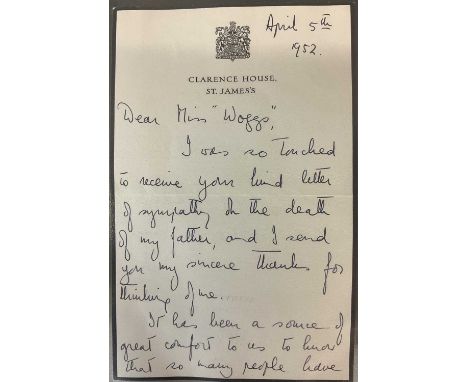 April 5th
1952.
CLARENCE HOUSE,
ST. JAMES'S
Dear Miss "Woggs",
I was so touched
to receive your kind letter
of sympathy on the death
of my father, and I send
you my sincere thanks for
thinking of me.
It has been a source of
great comfort to us to know
that so many people have